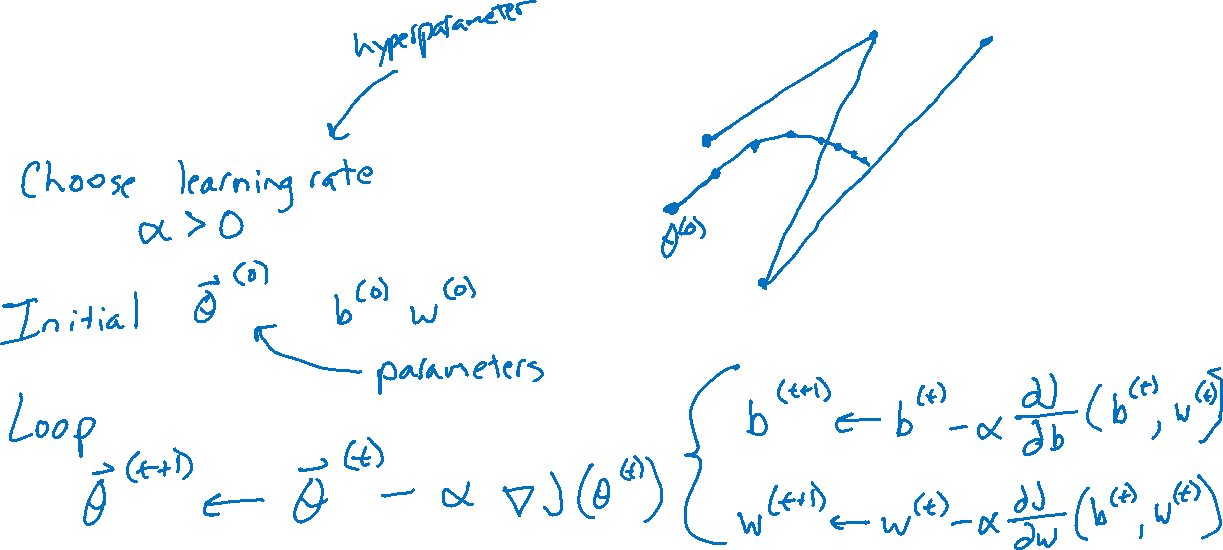 hyperparameter
Choose learning rate
α > 0
θ^(0)
Initial θ⃗^(0) b^(0) w^(0)
parameters
Loop
θ⃗^(t+1) ← θ⃗^(t) − α ∇J(θ^(t))
b^(t+1) ← b^(t) − α ∂J/∂b (b^(t), w^(t))
w^(t+1) ← w^(t) − α ∂J/∂w (b^(t), w^(t))